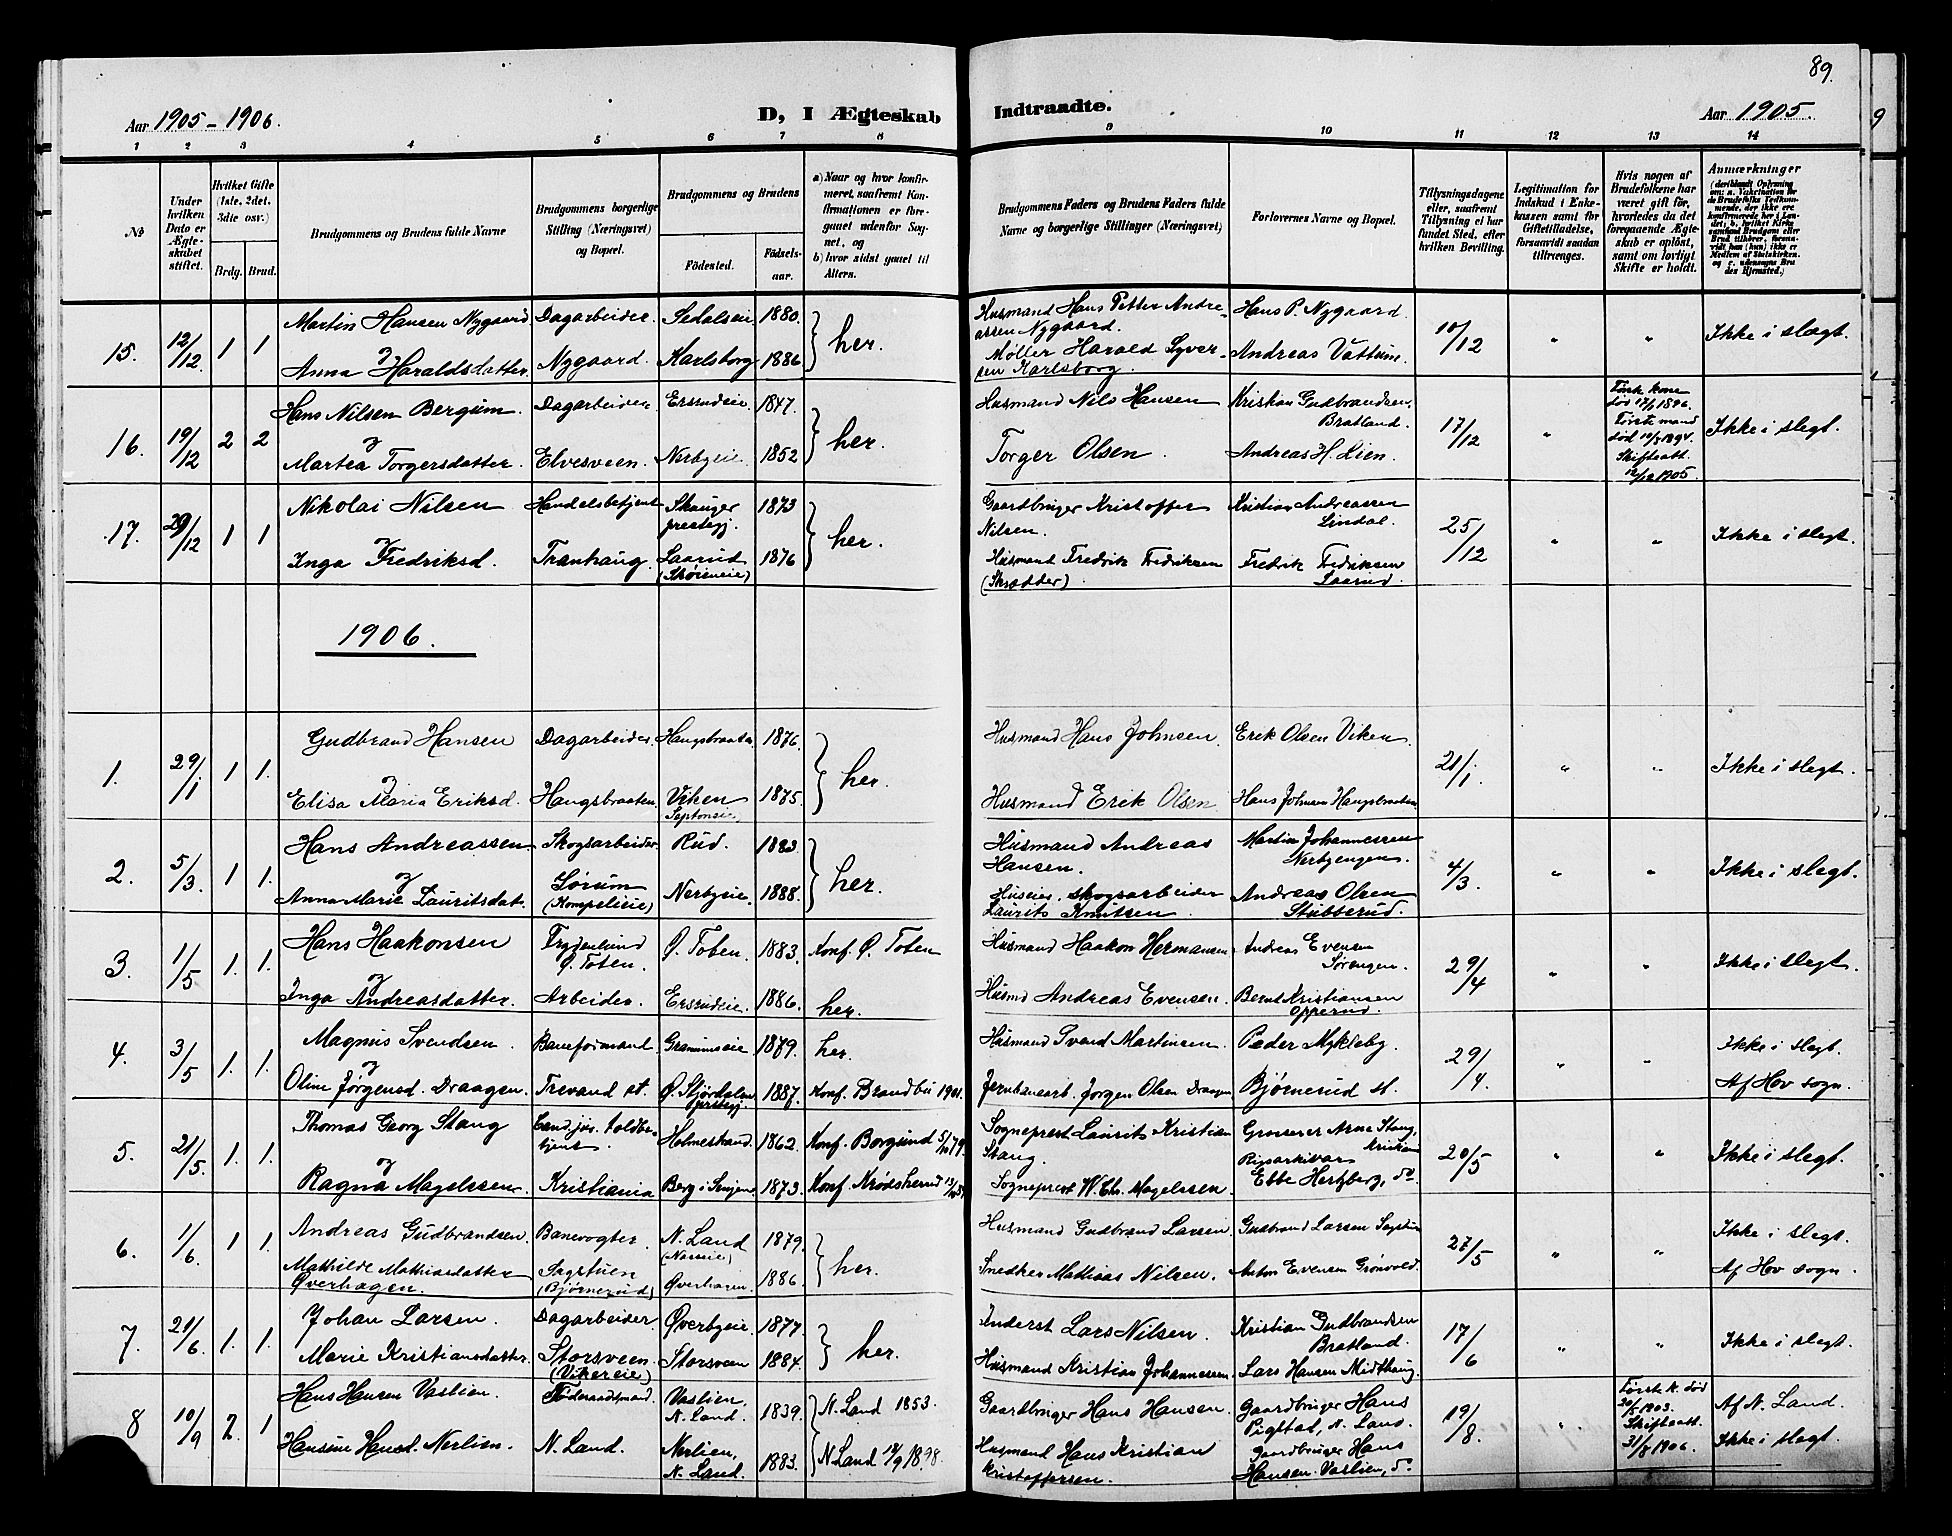 89.
Aar 1905 - 1906.
D, I Ægteskab Indtraadte.
Aar 1905.
1 2 3 4 5 6 7 8 9 10 11 12 13 14
No
Under hvilken Dato er Ægteskabet stiftet.
Hvilket Gifte (1ste, 2det, 3die osv.)
Brdg. Brud.
Brudgommens og Brudens fulde Navne
Brudgommens borgerlige Stilling (Næringsvei) og Bopæl.
Brudgommens og Brudens
Fødested. Fødselsaar.
a) Naar og hvor konfirmeret, saafremt Konfirmationen er foregaaet udenfor Sognet, og
b) hvor sidst gaaet til Alters.
Brudgommens Faders og Brudens Faders fulde Navne og borgerlige Stillinger (Næringsvei)
Forlovernes Navne og Bopæl.
Tillysningsdagene eller, saafremt Tillysning ei har fundet Sted, efter hvilken Bevilling.
Legitimation for Indskud i Enkekassen samt for Giftetilladelse, forsaavidt saadan tiltrænges.
Hvis nogen af Brudefolkene har været gift før, hvorledes da det foregaaende Ægteskab er opløst, samt om lovligt Skifte er holdt.
Anmærkninger
15. 12/12 1 1 Martin Hansen Nygaard Dagarbeider Sedalseie 1880. her. Husmand Hans Petter Andreassen Nygaard. Hans P. Nygaard 10/12 " " Ikke i slægt.
og
Anna Haraldsdatter. Nygaard. Karlsborg 1886 Møller Harald Syversen Karlsborg. Andreas Vattum.
16. 19/12 2 2 Hans Nilsen Bergum. Dagarbeider Ersrudeie 1847. her. Husmand Nils Hansen Kristian Gudbrandsen, Bratland. 17/12 " Ikke i slegt.
og
Martea Torgersdatter. Elvesveen. Nerbyeie 1852 Torger Olsen. Andreas H. Lien. Første mand Skifteatt. 1905.
17. 29/12 1 1 Nikolai Nilsen Handelsbetjent Skauger prestegj. 1873 her. Gaardbruger Kristoffer Nilsen. Kristian Andreassen Lindal. 25/12 " " Ikke i slegt.
og
Inga Fredriksd. Tranhaug. Laarud 1876 Husmand Fredrik Fredriksen (Skrædder). Fredrik Fredriksen Laarud.
1906.
1. 29/1 1 1. Gudbrand Hansen Dagarbeider. Haugsbraaten 1876. her. Husmand Hans Johnsen. Erik Olsen Viken. 21/1. " " Ikke i slegt.
og
Elisa Maria Eriksd. Haugsbraaten. Viken 1875. Husmand Erik Olsen Hans Johnsen Haugsbraaten
2. 5/3. 1 1. Hans Andreassen Skogsarbeider Rud. 1883. her. Husmand Andreas Hansen. Martin Johannessen Nerbyengen. 4/3. " " Ikke i slegt.
og
Anna Marie Lauritsdat. Sørum Nerbyeie 1888. Huseier, skogsarbeider Laurits Knutsen. Andreas Olsen Stubberud.
3. 1/5 1. 1. Hans Haakonsen Ø. Toten. Ø. Toten. 1883. Konf. Ø. Toten Husmand Haakon Hermansen Andreas Evensen Sørengen. 29/4 " " Ikke i slegt.
og
Inga Andreasdatter. Arbeider. Ersrudeie. 1886. her. Husmd Andreas Evensen. Bernt Kristiansen Opperud.
4. 3/5 1. 1. Magnus Svendsen. Baneformand Gramunseie 1879. her. Husmand Svend Martinsen. Peder Mykleby. 29/4. " " Ikke i slegt.
og
Oline Jørgensd. Draagen. Trevand st. Ø. Stjørdalen prestegj. 1887. Konf. Brandbu 1901. Jernbanearb. Jørgen Olsen Draagen Bjørnerud st. Af Hov sogn.
5. 21/5. 1. 1. Thomas Georg Stang Cand. jur. toldbetjent. Holmestrand. 1862. Konf. Borgund 5/10 79. Sogneprest Laurits Kristian Stang. Grosserer Arne Stang, Kristiania 20/5 " " Ikke i slegt.
og
Ragna Magelssen. Kristiania Berg i Senjen 1873. Konf. Krødsherred Sogneprest W. Chr. Magelssen. Rigsarkivar Ebbe Hertzberg, do
6. 1/6. 1 1. Andreas Gudbrandsen. Banevogter N. Land 1879. her. Husmand Gudbrand Larsen Gudbrand Larsen 27/5 " " Ikke i slegt.
Mathilde Mathiasdatter Øverhagen. Sagstuen (Bjørnerud) Øverhagen. 1886. Snedker Mathias Nilsen. Anton Evensen Grønvold. Af Hov sogn.
7. 21/6. 1. 1. Johan Larsen. Dagarbeider. Øverbyeie 1877. her. Inderst Lars Nilsen. Kristian Gudbrandsen Bratland. 17/6 " " Ikke i slegt.
Marie Kristiansdatter. Storsveen. (Vikereie) Storsveen 1884. Husmand Kristian Johannessen. Lars Hansen Midthaug.
8 10/9 2. 1 Hans Hansen Vaslien. Føderaadsmand Vaslien, N. Land. 1839. N. Land 1853. Gaardbruger Hans Hansen. Gaardbruger Hans Pigstad, N. Land. 19/8. Første k. død 20/5 1903. Skifteatt. 31/8 1906. Af N. Land.
Hansine Hansd. Nerlien. N. Land. Nerlien, N. Land. 1883. N. Land 1898. Husmand Hans Kristian Kristoffersen. Gaardbruger Hans Hansen Vaslien, do Ikke i slegt.